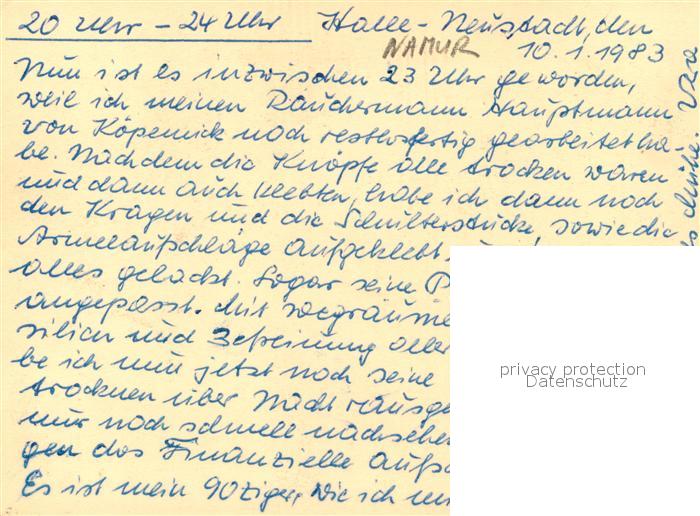 20 Uhr – 24 Uhr Halle-Neustadt, den
NAMUR 10.1.1983
Nun ist es inzwischen 23 Uhr geworden,
weil ich meinen Räuchermann Hauptmann
von Köpenick noch restlos fertig gearbeitet ha-
be. Nachdem die Knöpfe alle trocken waren
und dann auch klebten, habe ich dann noch
den Kragen und die Schulterstücke, sowie die
Armelaufschläge aufgeklebt
alles gelackt. Sogar seine P
angepasst. Mit wegräume
silien und Befreiung aller
be ich nun jetzt noch seine
trocknen über Nacht rausge
nur noch schnell nachsehe
gen das Finanzielle aufsc
Es ist mein 90ziger, wie ich
privacy protection
Datenschutz